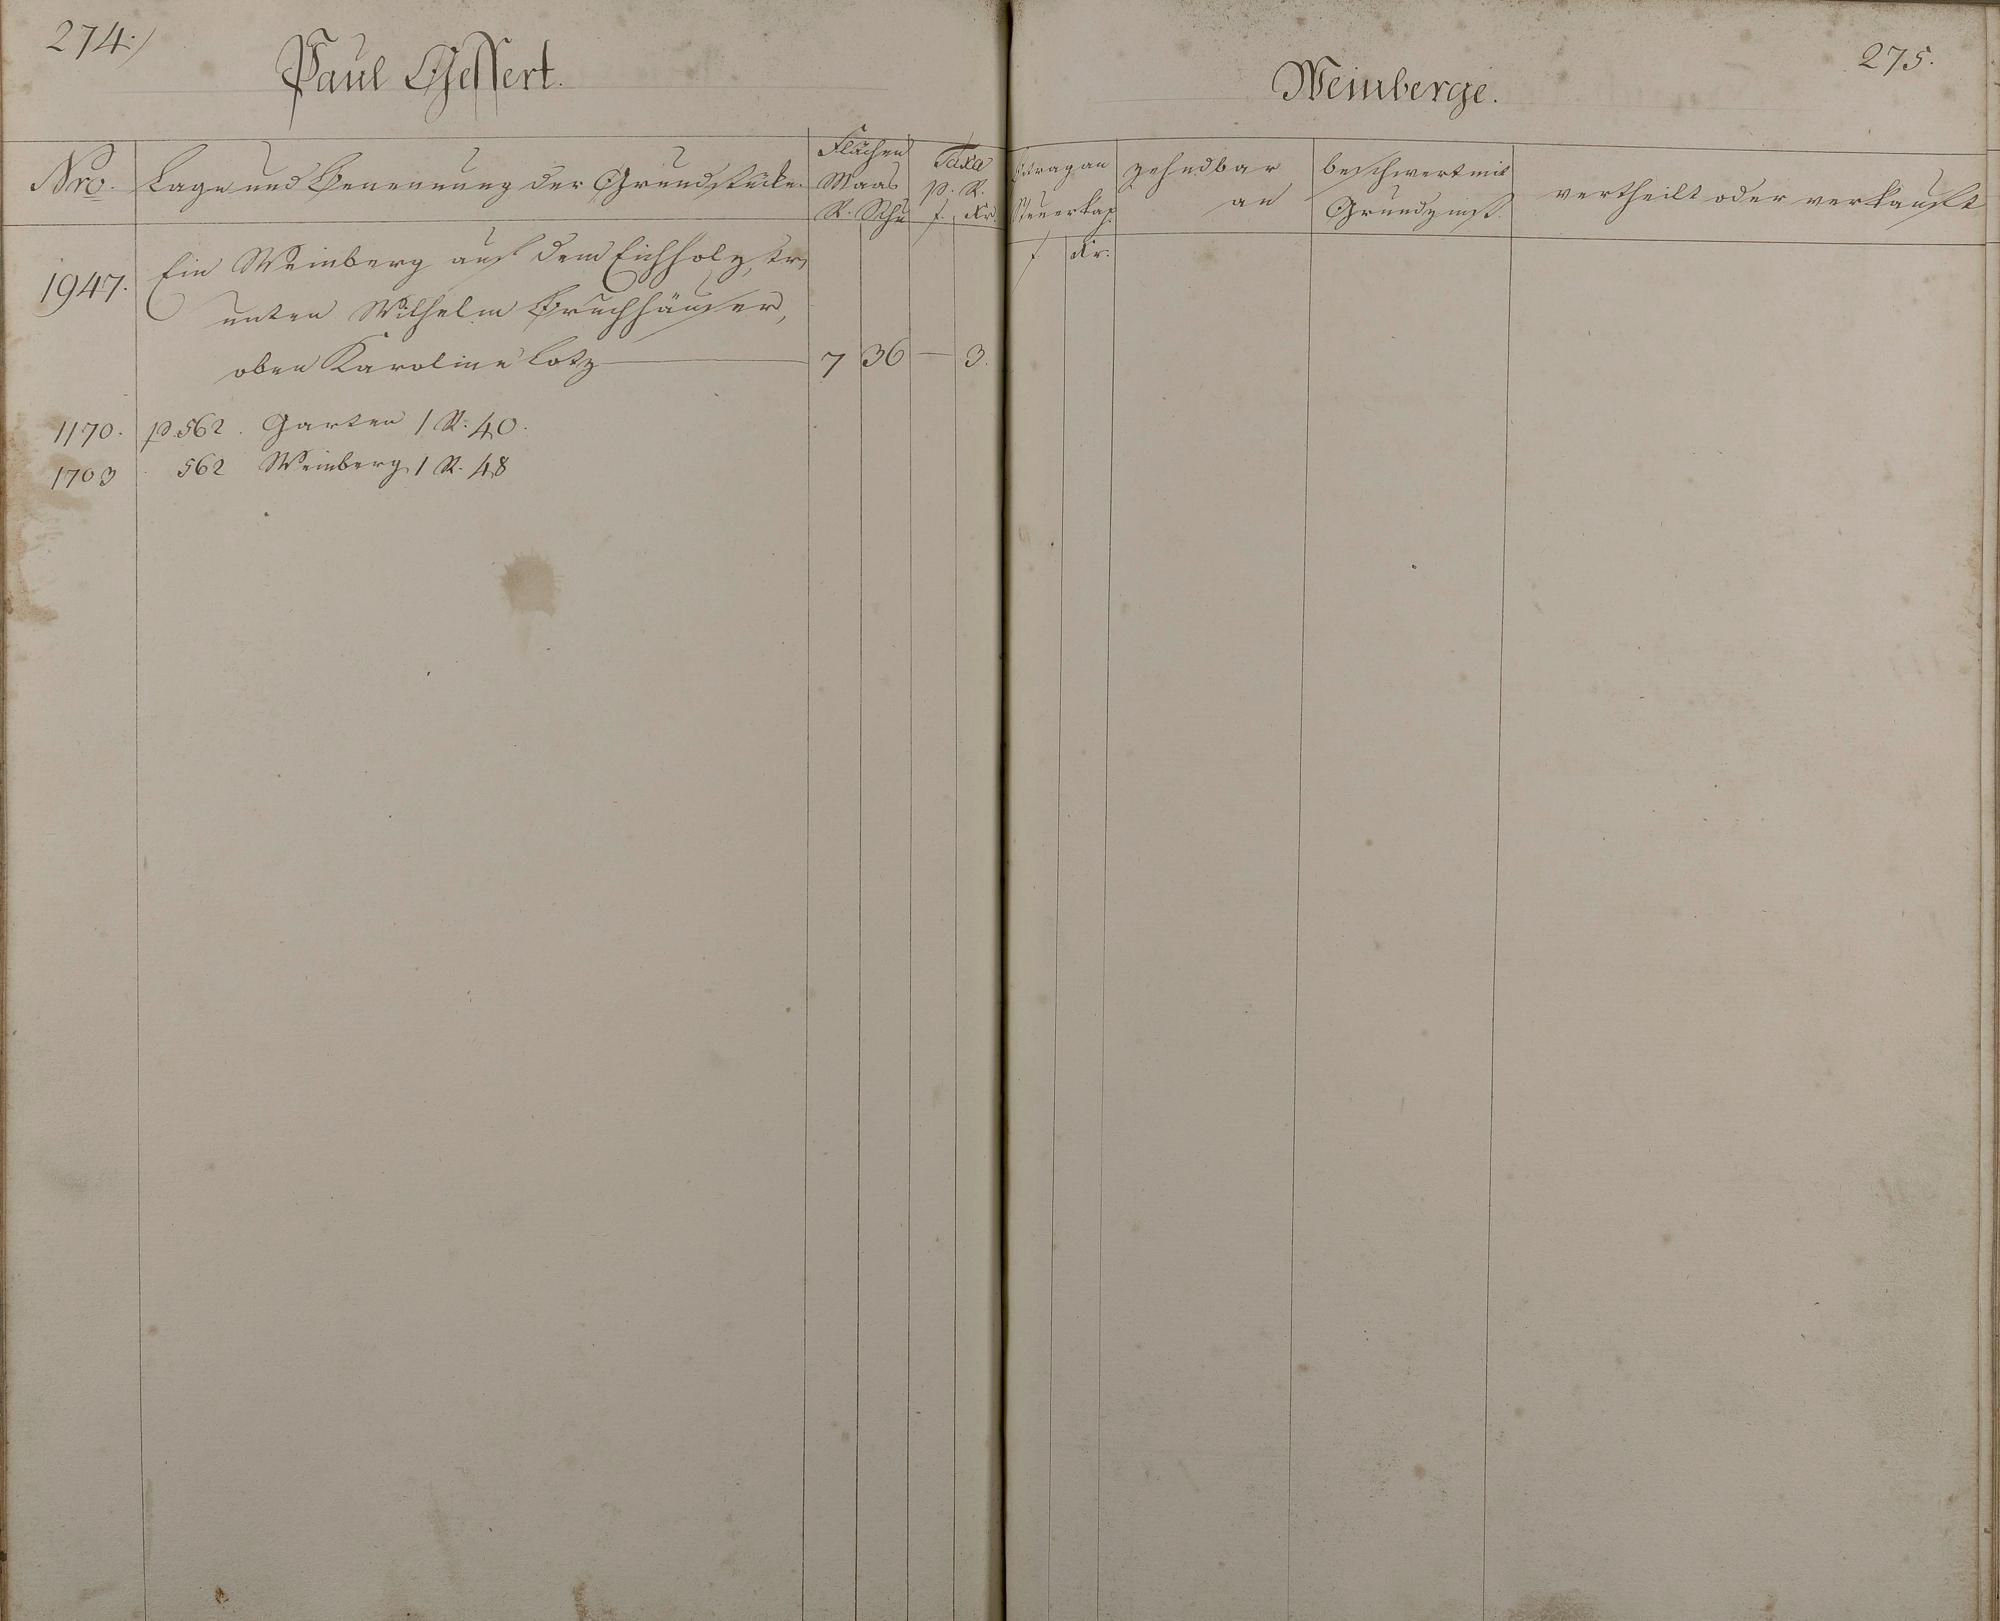 274.)
Paul Gessert.
Nro.
Lage und Benennung der Grundstücke.
Flächen
Maas
R. Schu
Taxa
p. R.
f. Kr.
1947. Ein Weinberg auf dem Eichholz,
unten Wilhelm Bruchhäuser,
oben Karoline Lotz — 7 36 — 3.
1170. p. 562. Garten 1 R. 40.
1703 562 Weinberg 1 R. 48
275.
Weinberge.
Btrag an
Steuerkap.
f Kr.
zehndbar
an
beschwert mit
Grundzinß.
vertheilt oder verkauft